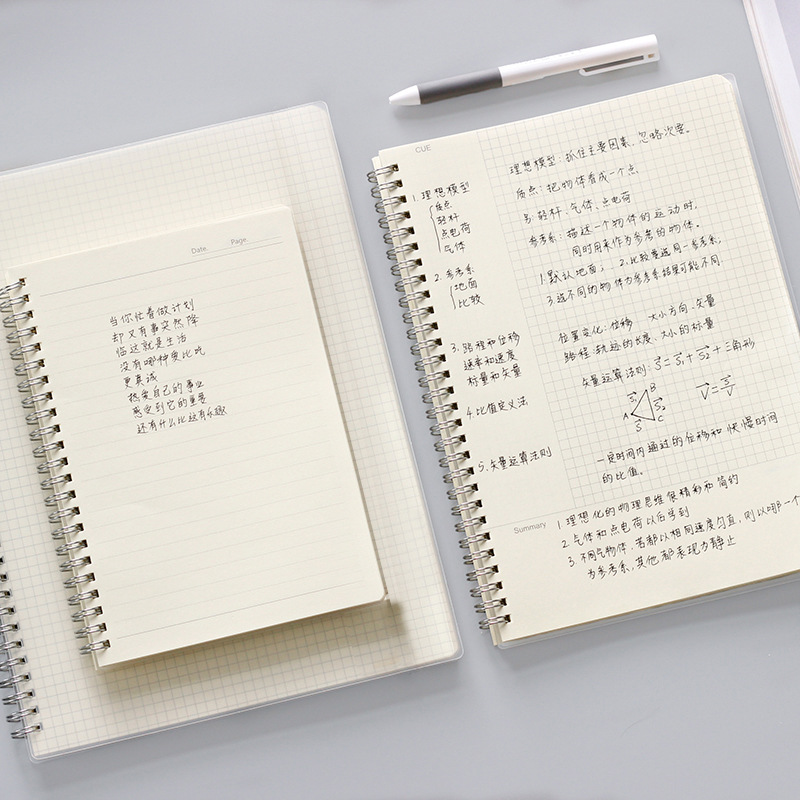 Date.
Page.
当你忙着做计划
却又有事突然降
临这就是生活
没有哪种更比吃
更真诚
热爱自己的事业
感受到它的重要
还有什么比这有乐趣
CUE
1.理想模型
质点
轻杆
点电荷
气体
2.参考系
地面
比较
3.路程和位移
速率和速度
标量和矢量
4.比值定义法
5.矢量运算法则
理想模型:抓住主要因素,忽略次要。
质点:把物体看成一个点
轻杆、气体、点电荷
参考系:描述一个物体的运动时,
同时用来作为参考的物体。
1.默认地面; 2.比较量选同一参考系,
3.选不同的物体为参考系结果可能不同
位置变化:位移 大小方向、矢量
路程:轨迹的长度 大小的标量
矢量运算法则:S=S1+S2+三角形
S1 B
A S2
S C
V=S/V
一定时间内通过的位移和快慢时间
的比值。
Summary
1.理想化的物理思维很精彩和简约
2.气体和点电荷以后学到
3.不同气物体,若都以相同速度匀直,则以哪一个
为参考系,其他都表现为静止